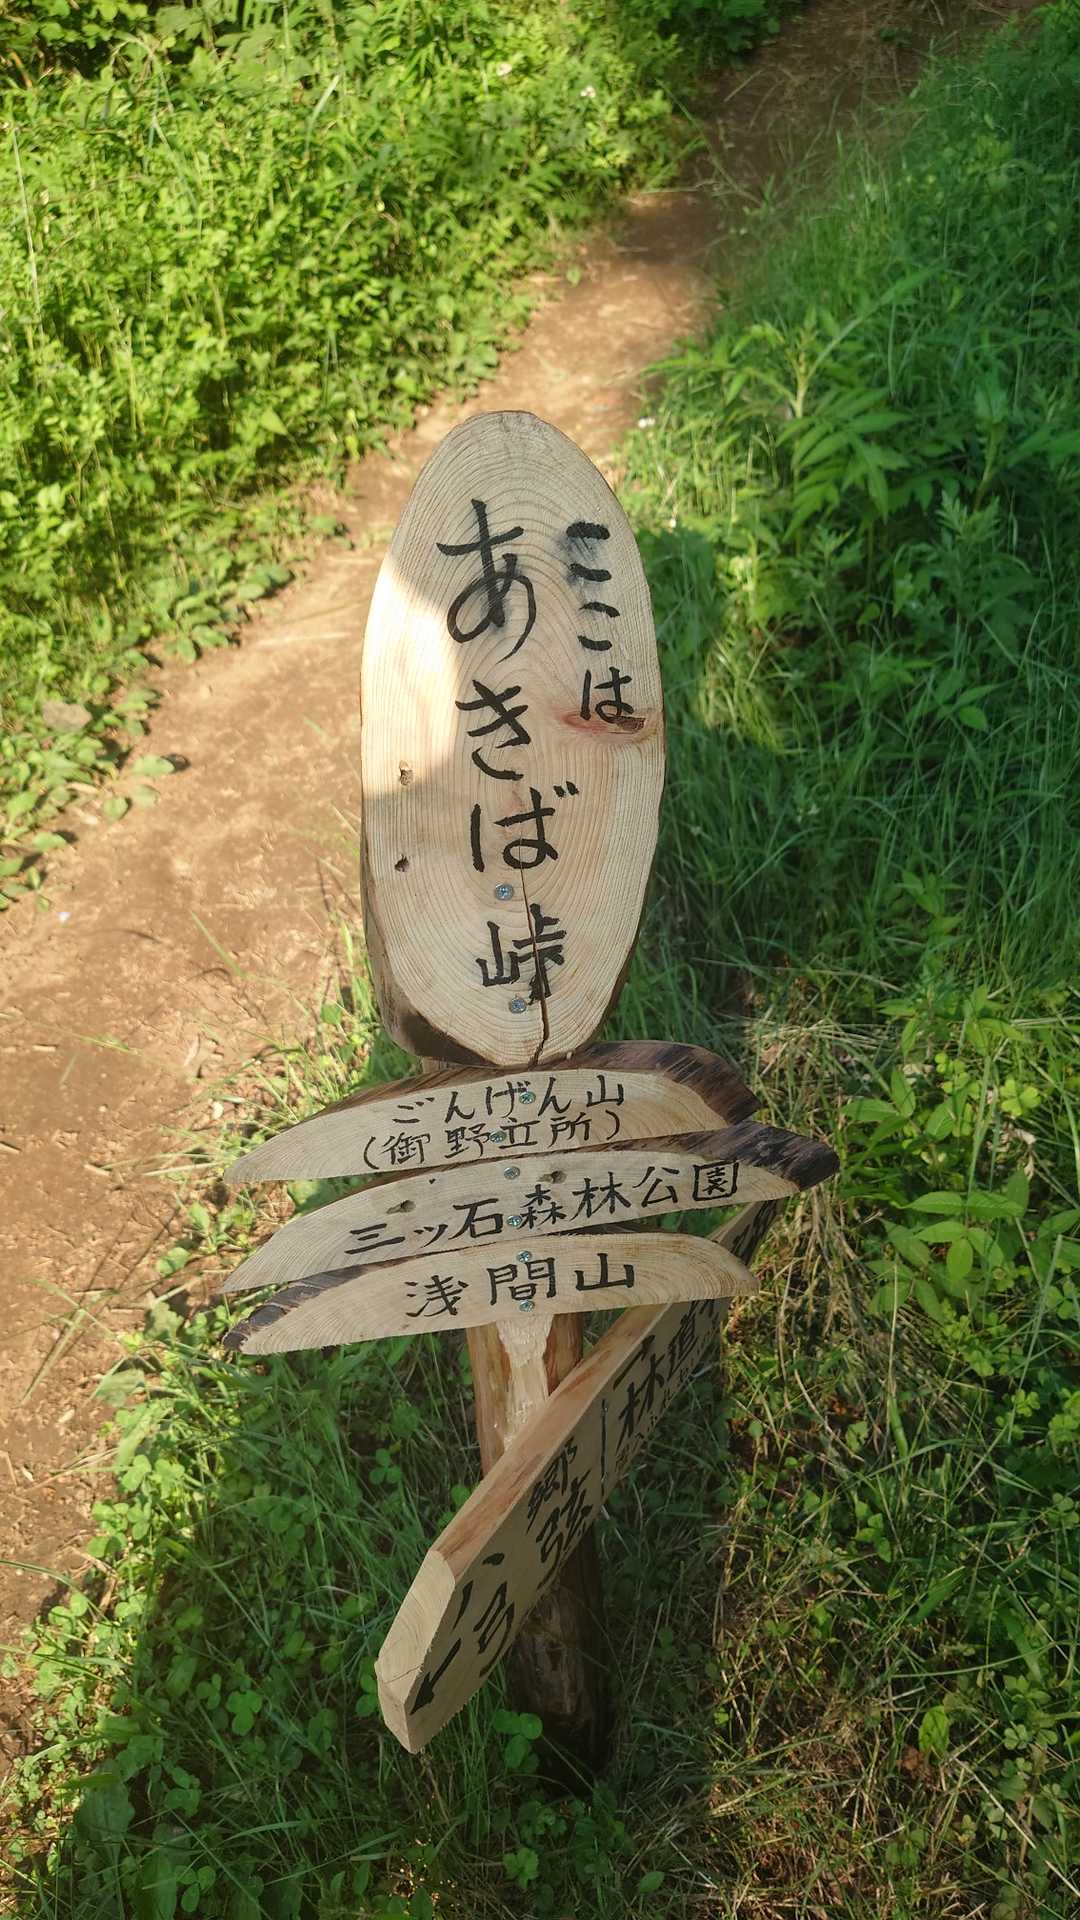 ここは
あきば峠
ごんげん山
(御野立所)
三ッ石森林公園
浅間山
林道